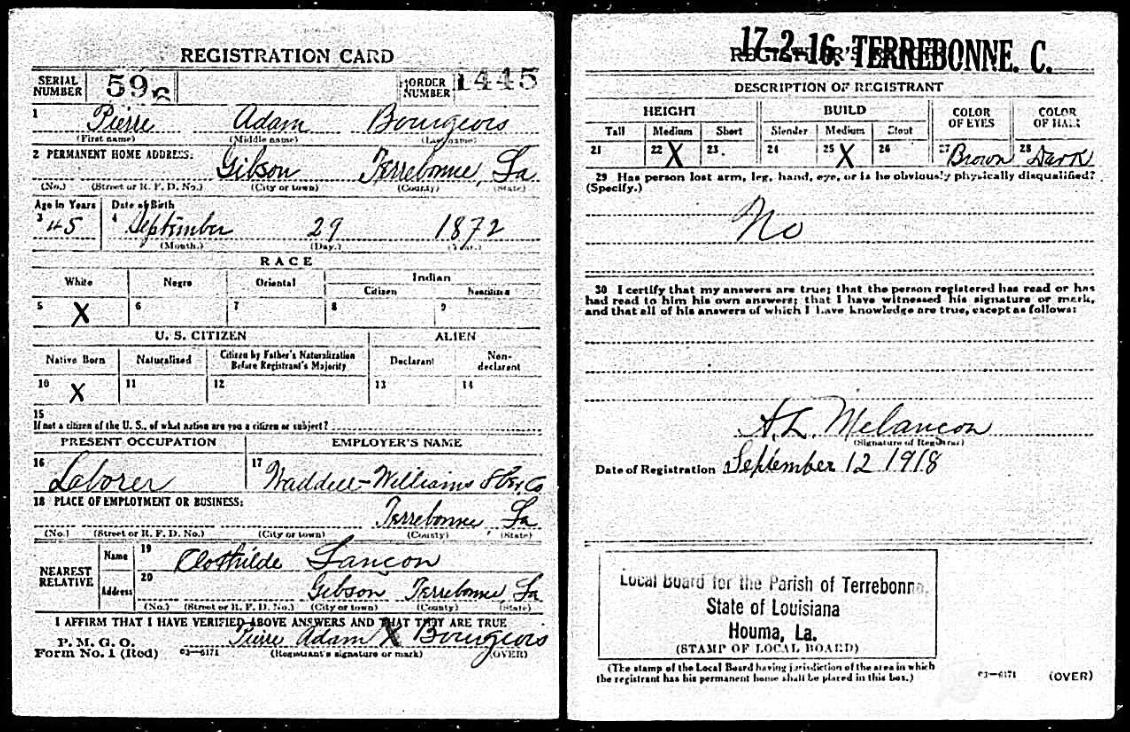 REGISTRATION CARD
SERIAL NUMBER 596 ORDER NUMBER 1445
1 Pierre Adam Bourgeois
(First name) (Middle name) (Last name)
2 PERMANENT HOME ADDRESS: Gibson Terrebonne, La
(No.) (Street or R. F. D. No.) (City or town) (County) (State)
Age in Years Date of Birth
3 45 4 September 29 1872
(Month.) (Day.) (Year.)
RACE
White Negro Oriental Indian
Citizen Noncitizen
5 X 6 7 8 9
U. S. CITIZEN ALIEN
Native Born Naturalized Citizen by Father's Naturalization Before Registrant's Majority Declarant Non-declarant
10 X 11 12 13 14
15
If not a citizen of the U. S., of what nation are you a citizen or subject?
PRESENT OCCUPATION EMPLOYER'S NAME
16 Laborer 17 Waddell-Williams Co
18 PLACE OF EMPLOYMENT OR BUSINESS:
Terrebonne, La
(No.) (Street or R. F. D. No.) (City or town) (County) (State)
NEAREST RELATIVE Name 19 Clothilde Lancon
Address 20 Gibson Terrebonne, La
(No.) (Street or R. F. D. No.) (City or town) (County) (State)
I AFFIRM THAT I HAVE VERIFIED ABOVE ANSWERS AND THAT THEY ARE TRUE
P. M. G. O.
Form No. 1 (Red) 03—6171 Pierre Adam X Bourgeois
(Registrant's signature or mark) (OVER)
17-2-16. TERREBONNE. C.
DESCRIPTION OF REGISTRANT
HEIGHT BUILD COLOR OF EYES COLOR OF HAIR
Tall Medium Short Slender Medium Stout
21 22 X 23 24 25 X 26 27 Brown 28 Dark
29 Has person lost arm, leg, hand, eye, or is he obviously physically disqualified?
(Specify.)
No
30 I certify that my answers are true; that the person registered has read or has
had read to him his own answers; that I have witnessed his signature or mark,
and that all of his answers of which I have knowledge are true, except as follows:
A. L. Melancon
(Signature of Registrar)
Date of Registration September 12 1918
Local Board for the Parish of Terrebonne,
State of Louisiana
Houma, La.
(STAMP OF LOCAL BOARD)
(The stamp of the Local Board having jurisdiction of the area in which
the registrant has his permanent home shall be placed in this box.)
03—6171 (OVER)